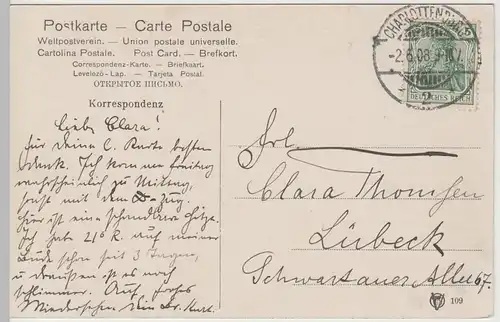 Postkarte — Carte Postale
Weltpostverein. — Union postale universelle.
Cartolina Postale. Post Card. — Brefkort.
Correspondenz-Karte. — Briefkaart.
Levelező-Lap. — Tarjeta Postal.
ОТКРЫТОЕ ПИСЬМО.
Korrespondenz
Liebe Clara!
für Deine l. Karte besten
Dank. Ich komme Freitag
wahrscheinlich zu Mittag,
sonst mit dem D-Zug.
Hier ist eine schandbare Hitze.
Ich habe 21° R. auf meiner
Bude schon seit 3 Tagen,
u draußen ist es noch
schlimmer. Auf frohes
Wiedersehen Dein Br. Kurt.
CHARLOTTENBURG
-2.6.08.9-10V.
2
5
DEUTSCHES REICH
Frl.
Clara Thomsen
Lübeck
Schwartauer Allee 67.
109